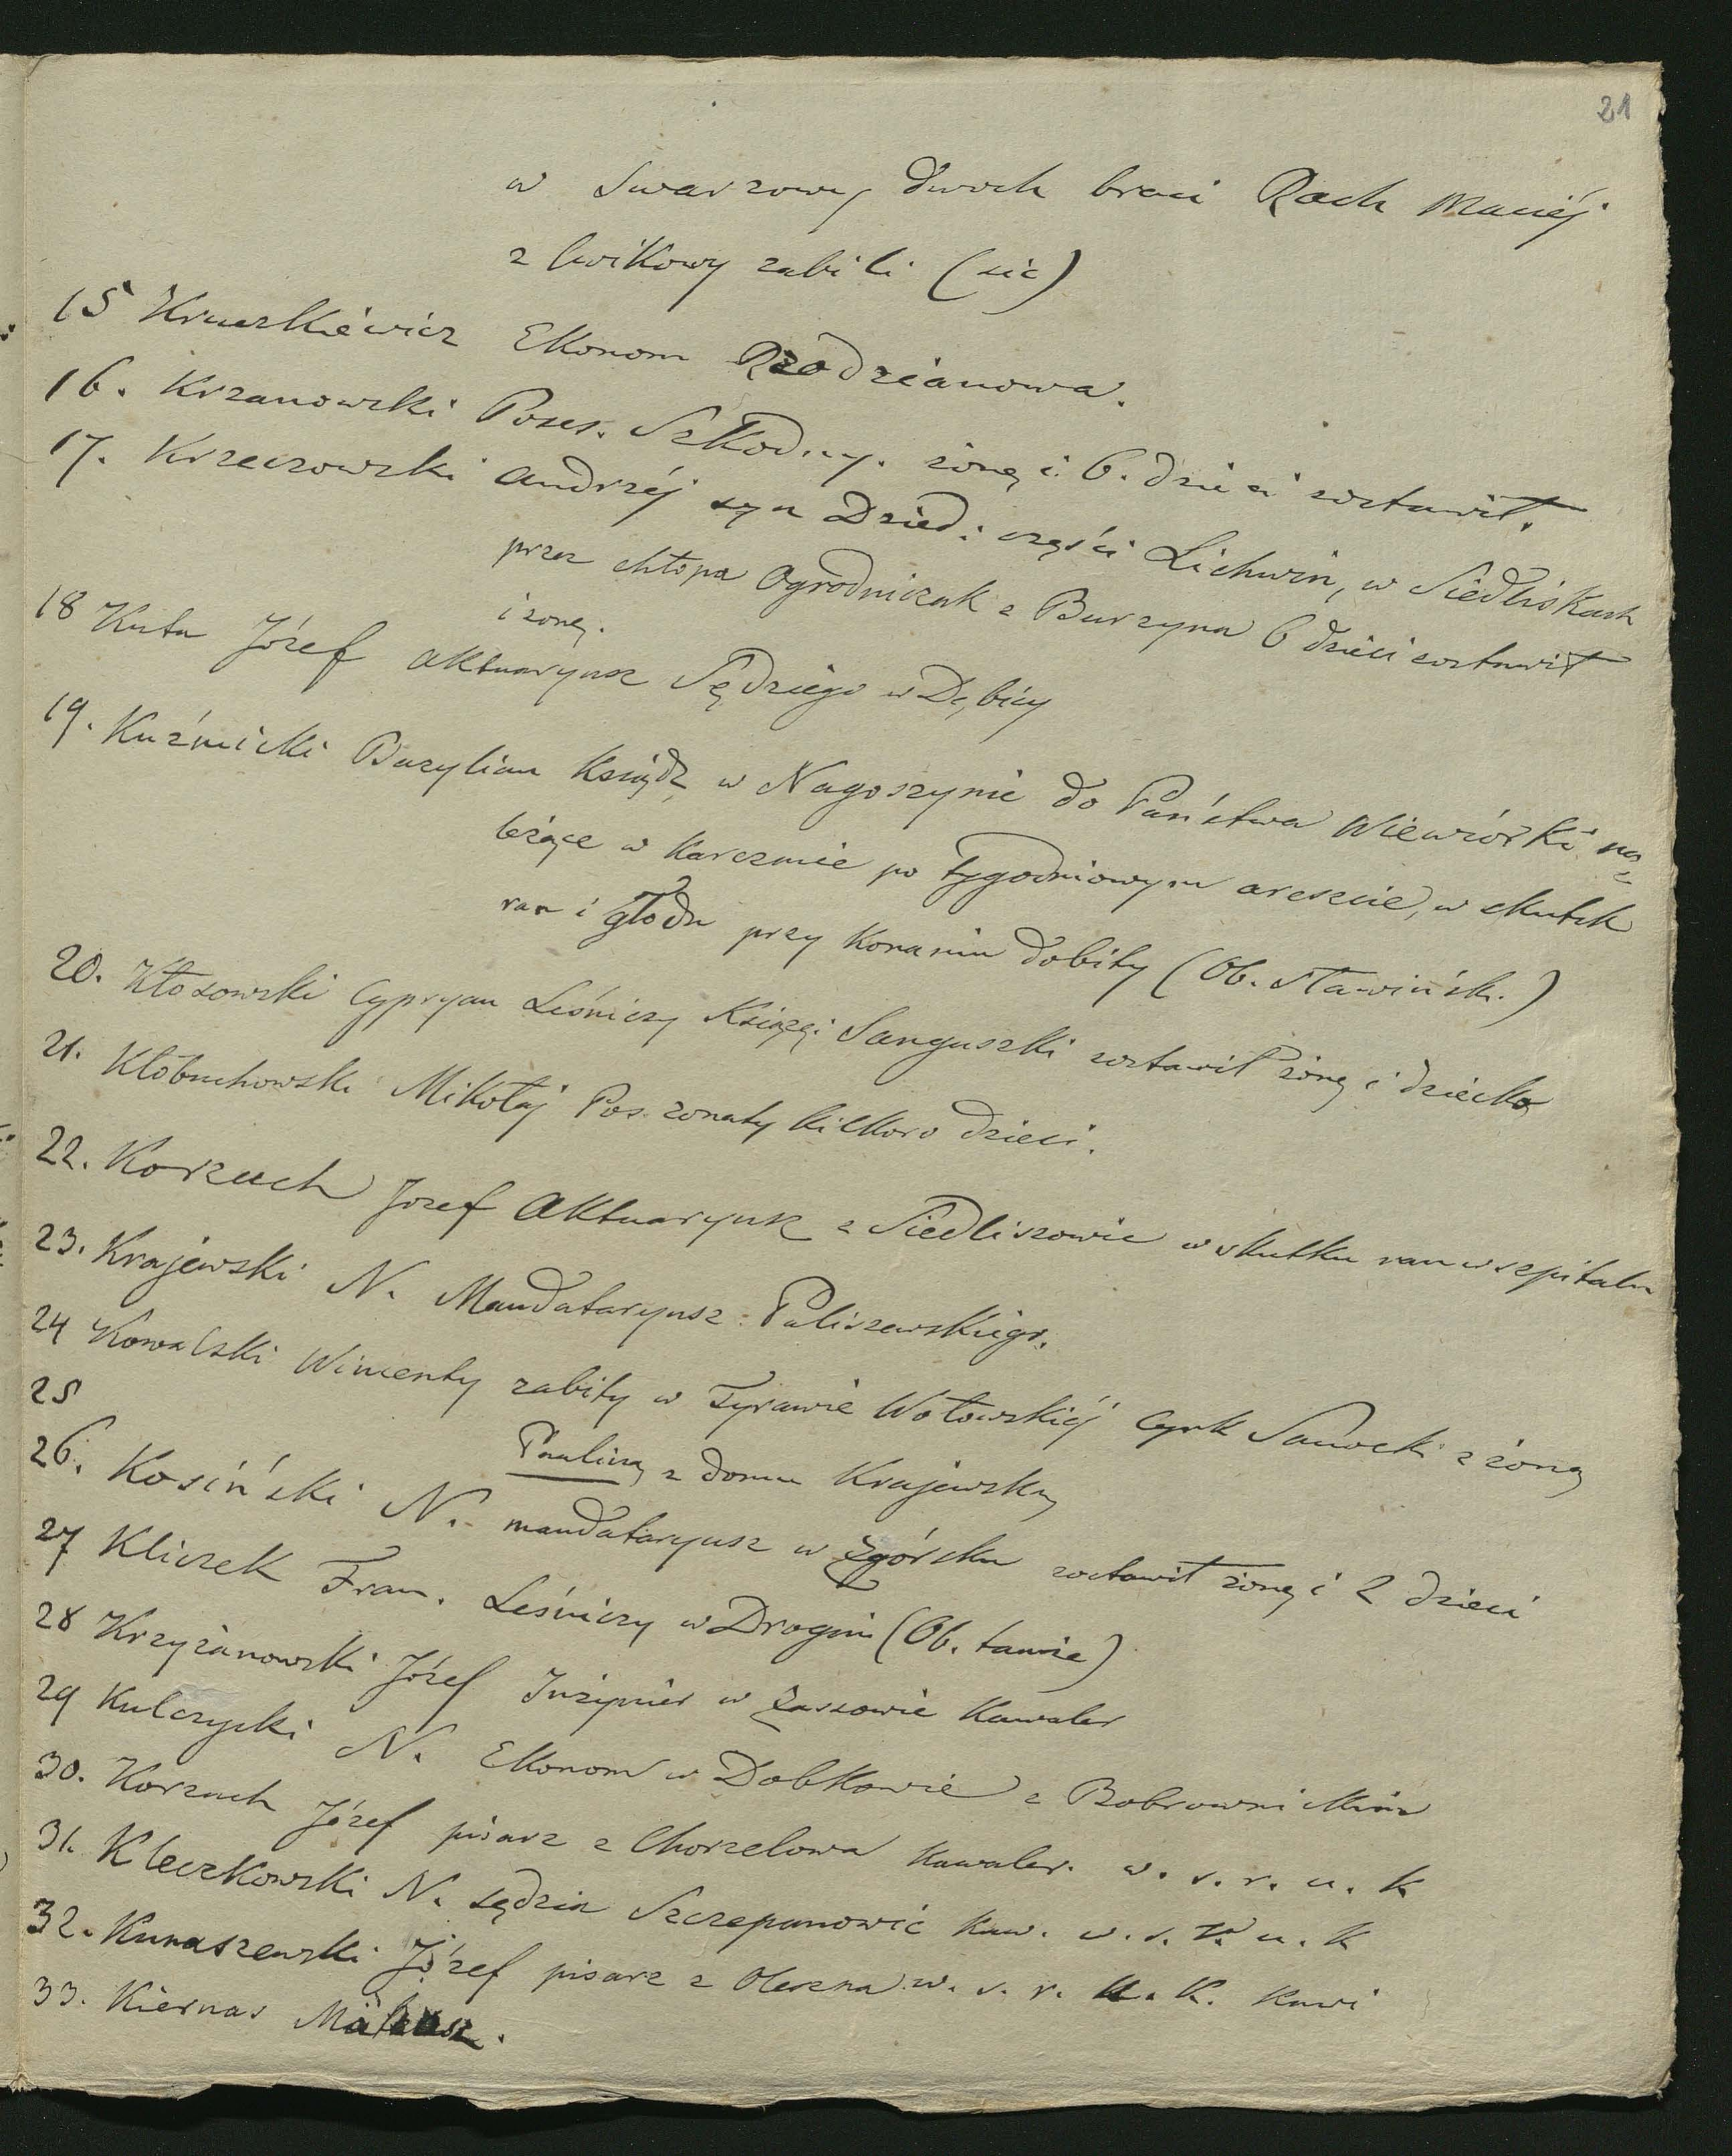 21
w Swarzowy dwoch braci Rach Maciéj
z Cwikowy zabili (sic)
15 Kruszkiéwicz Ekonom Radzianowa.
16. Krzanowski Poses. Szkodny. żonę i 6. dzieci zostawił.
17. Krzeczowski Andrzéj syn Dzied: części Lichwin, w Siedliskach
przez chłopa Ogrodniczak z Burzyna 6 dzieci zostawił
i żonę.
18 Kuta Józef Aktuaryusz Sędziego w Dębicy
19. Kuźmicki Bazylian Ksiądz w Nagoszynie do Państwa Wiewiórki na=
leżące w Karczmie po tygodniowym areszcie, w skutek
ran i głodu przy konaniu dobity (Ob. Sławińsk.)
20. Kłosowski Cypryan Leśniczy Księżęi Sanguszki zostawił żonę i dziecko
21. Kłobuchowski Mikołaj Pos. żonaty kilkoro dzieci.
22. Korzuch Jozef Aktuaryusz z Siedliszowic w skutku ran w szpitalu
23. Krajewski N. Mandataryusz Paliszewskiego.
24 Kowalski Wincenty zabity w Tyrawie Wołowskiéj Cyrk Sanocki z żoną
25
Pauliną z domu Krajewską
26. Kosiński N. mandataryusz w Zgórsku zostawił żonę i 2 dzieci
27 Kliczek Fran. Leśniczy w Drogini (Ob. tamże)
28 Krzyżanowski Józef Inżynier w Zassowie Kawaler
29 Kulczycki N. Ekonom w Dobkowie z Bobrownickim
30. Korzuch Józef pisarz z Chorzelowa Kawaler. w. s. r. u. k
31. Kleczkowski N. sędzia Szczepanowic Kaw. w. s. r. u. k
32. Kunaszewski Józef pisarz z Olesna w. s. r. u. k. Kawi
33. Kiernas Mateusz.